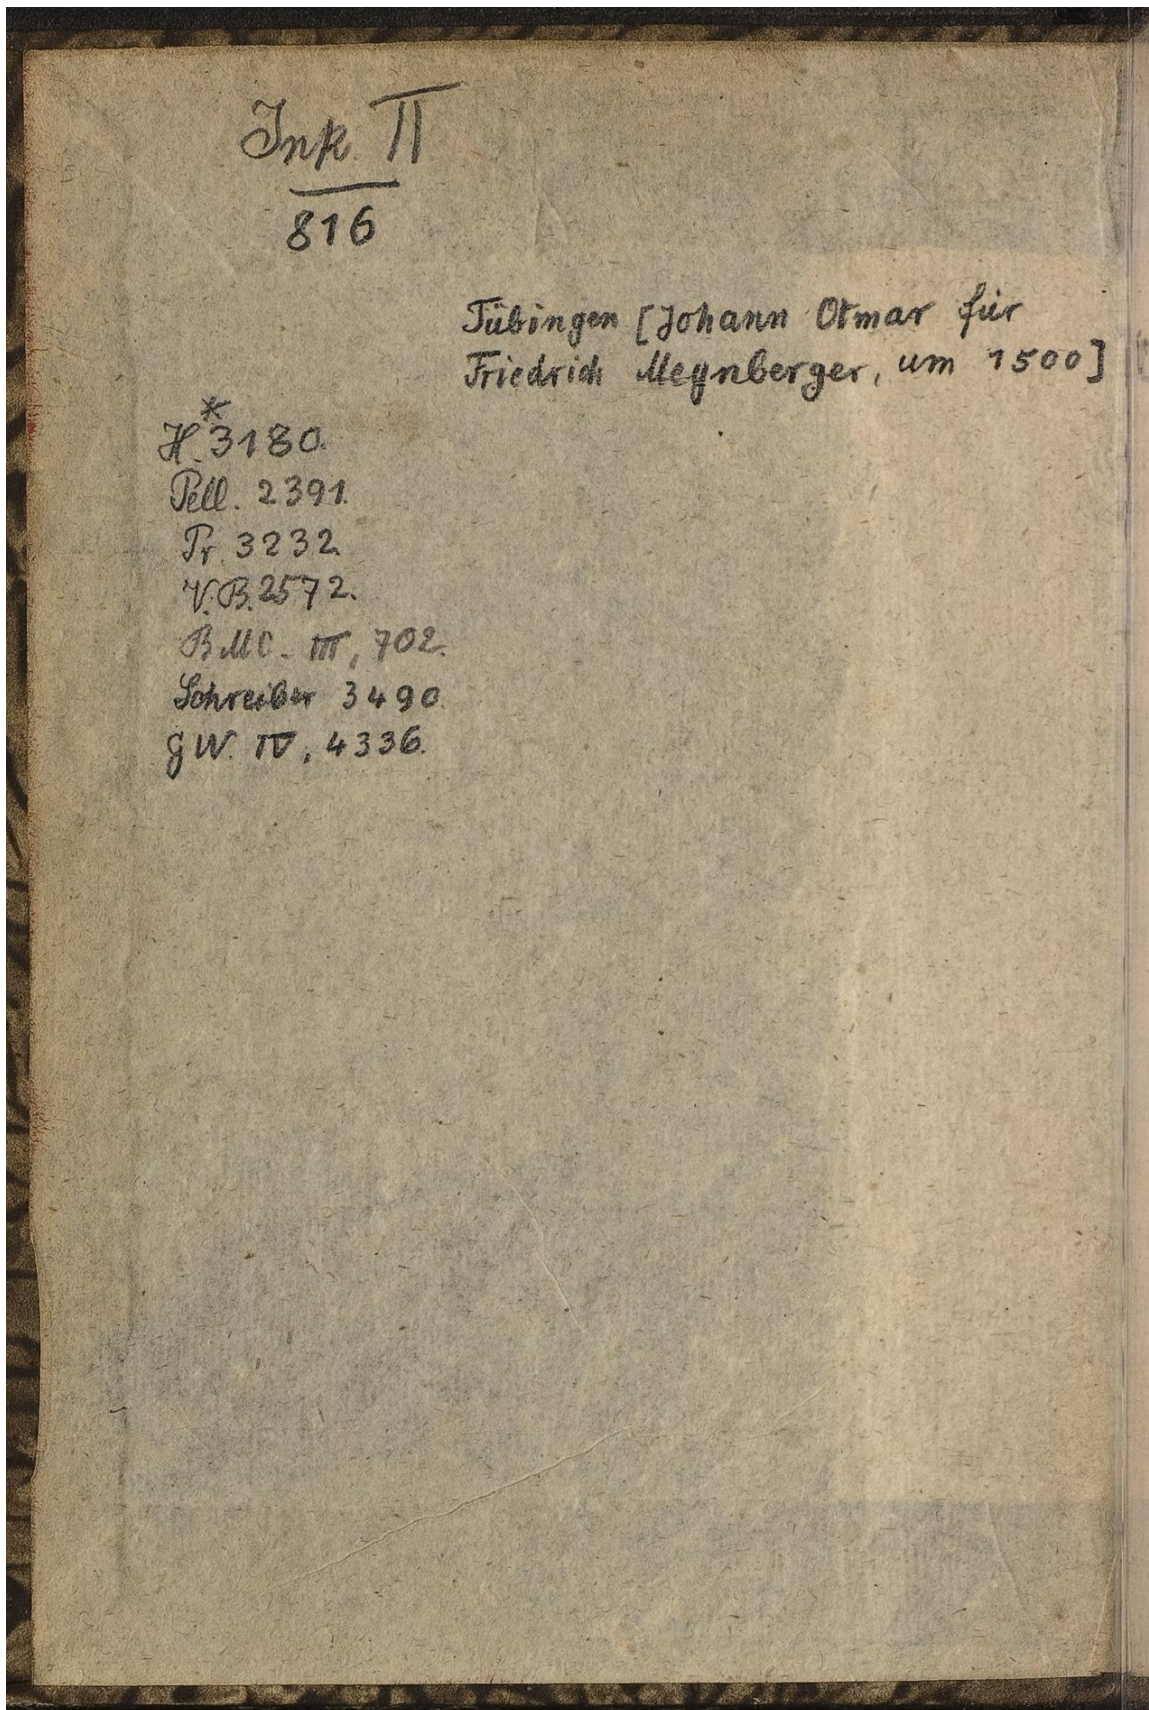 Ink. II
816
Tübingen [Johann Otmar für
Friedrich Meynberger, um 1500]
H.*3180.
Pell. 2391.
Pr. 3232.
V.B. 2572.
BMC. III, 702.
Schreiber 3490.
GW. IV, 4336.